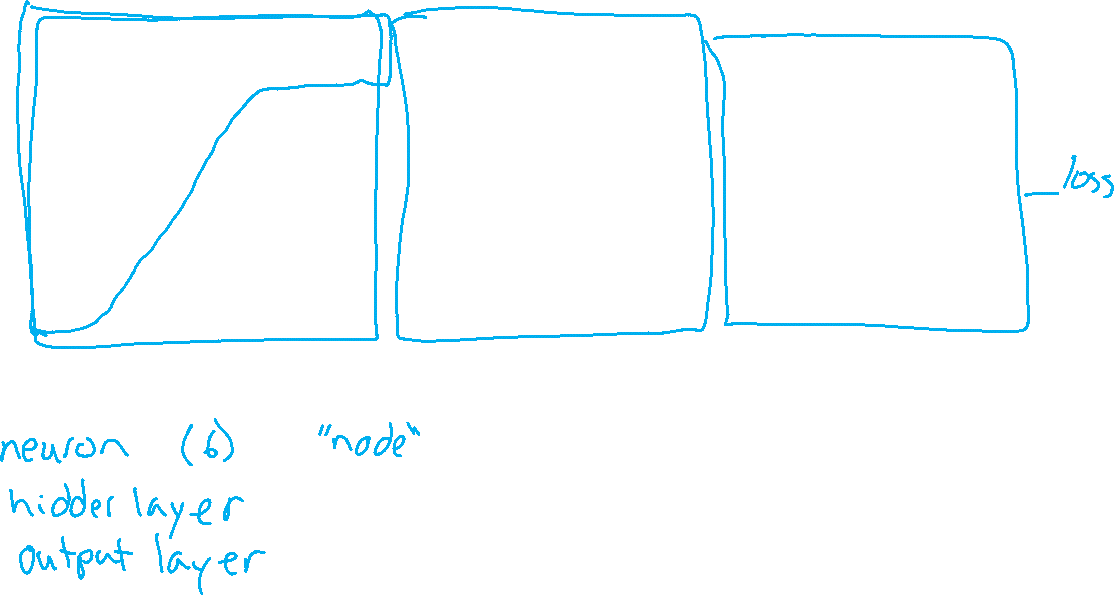 loss
neuron (6) "node"
hidder layer
output layer